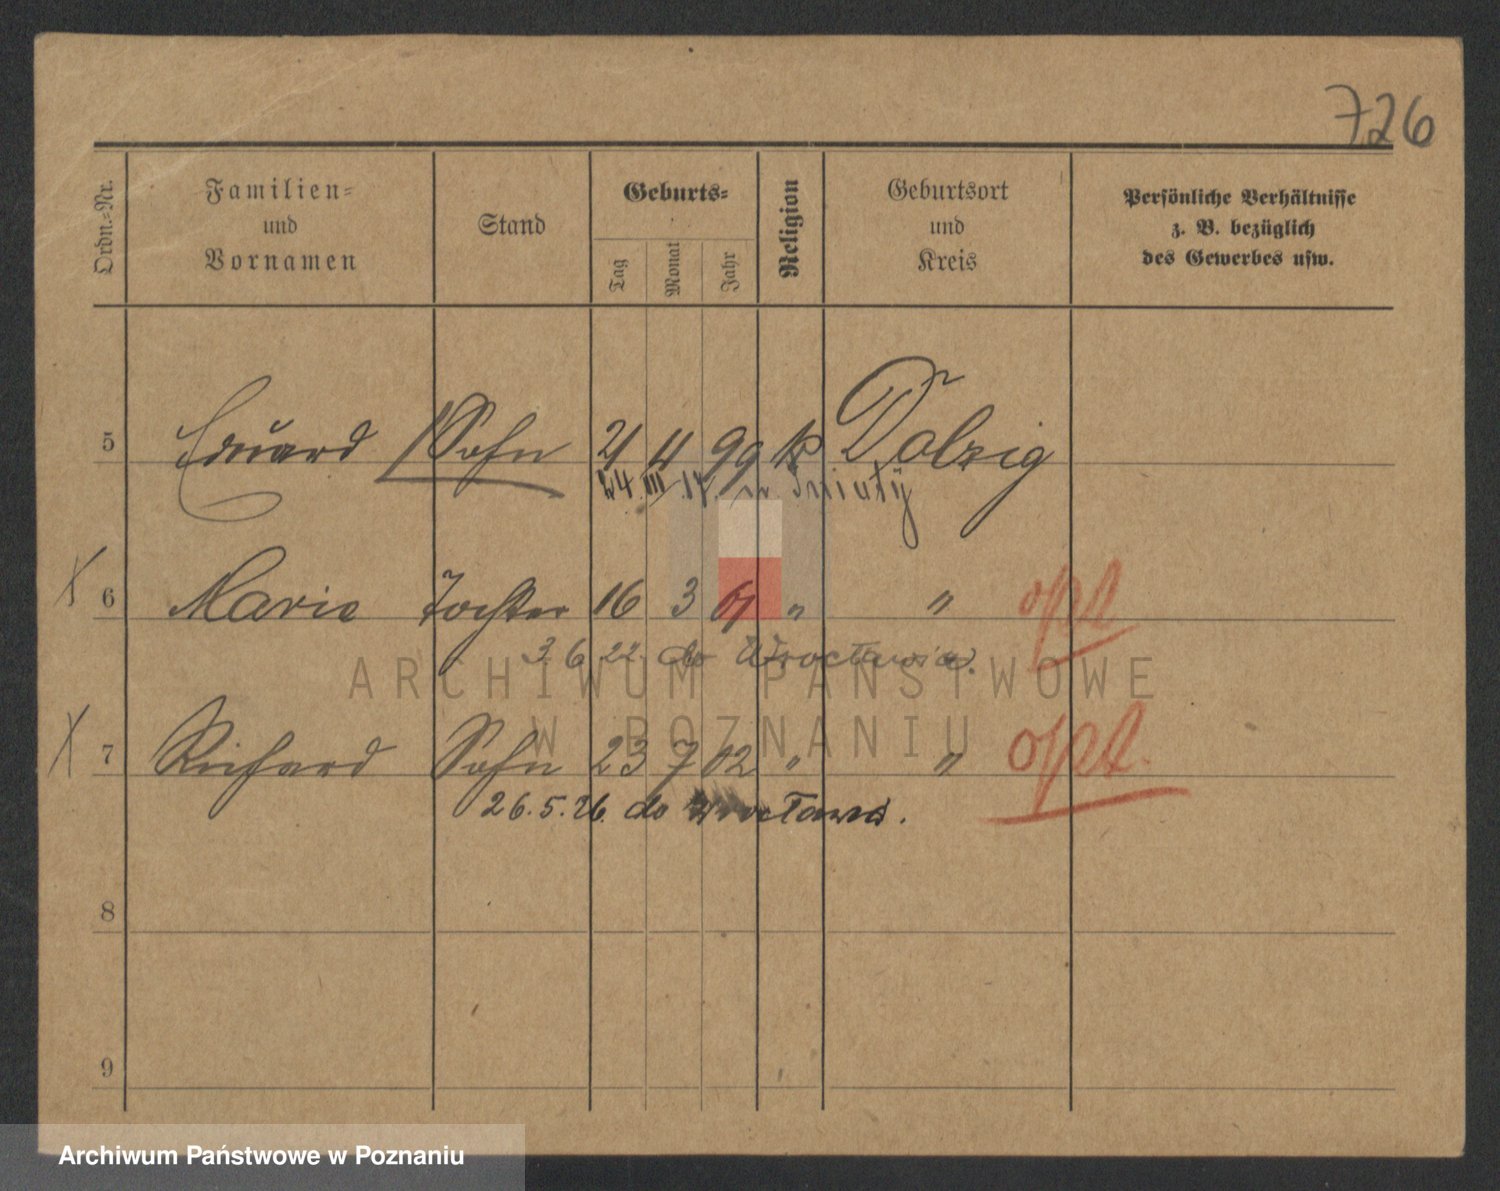 726
Ordn.=Nr.
Familien=
und
Vornamen
Stand
Geburts=
Tag
Monat
Jahr
Religion
Geburtsort
und
Kreis
Persönliche Verhältnisse
z. B. bezüglich
des Gewerbes usw.
5 Eduard Sohn 21 4 99 k Dolzig
24. III 17.
X 6 Marie Tochter 16 3 01 " " opt
3.6.22. do Wrocławia.
X 7 Richard Sohn 23 7 02 " " opt.
26.5.26. do Wrocławia.
8
9
ARCHIWUM PAŃSTWOWE
W POZNANIU
Archiwum Państwowe w Poznaniu